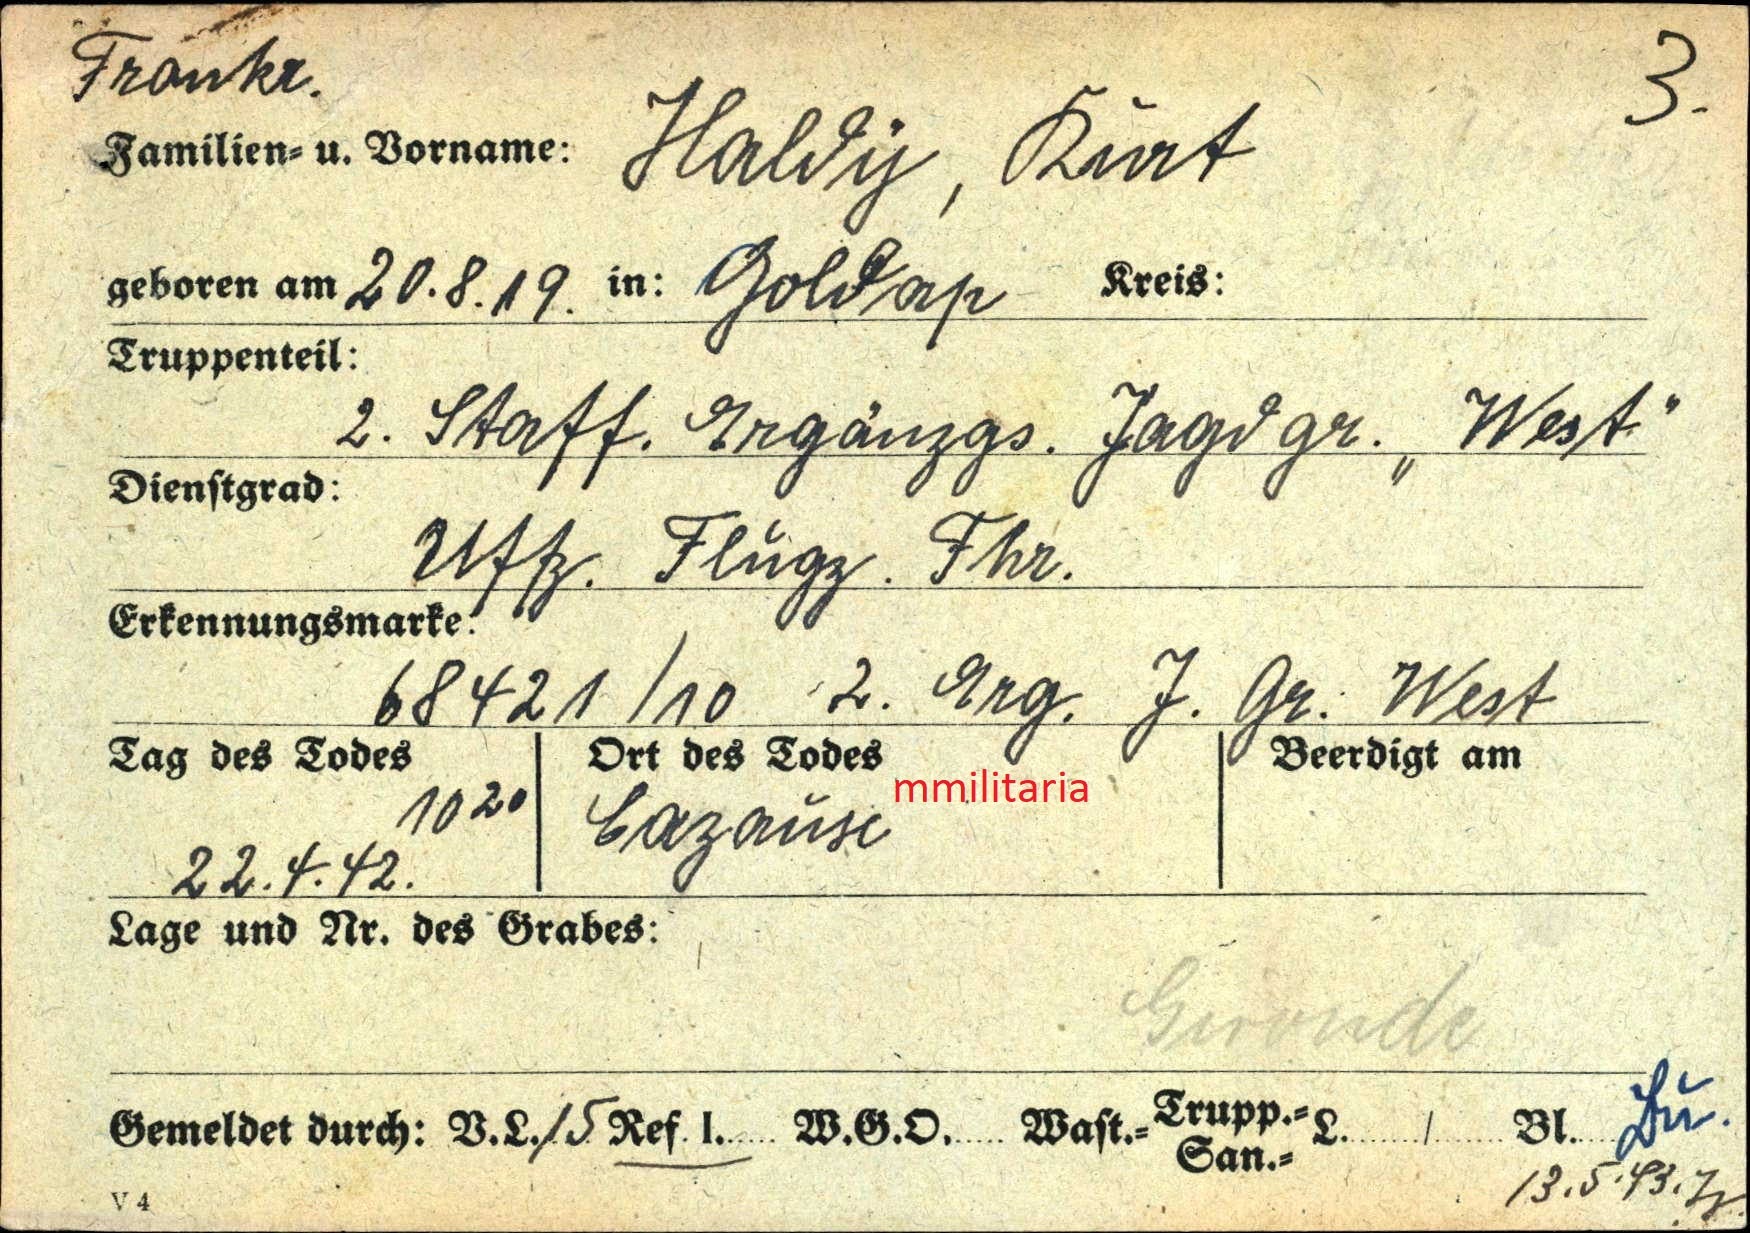 Frankr.
3.
Familien- u. Vorname: Haldÿ, Kurt
geboren am 20.8.19. in: Goldap Kreis:
Truppenteil:
2. Staff. Ergänzgs. Jagdgr. „West"
Dienstgrad:
Uffz. Flugz. Fhr.
Erkennungsmarke:
68421/10 2. Erg. J. Gr. West
Tag des Todes Ort des Todes Beerdigt am
mmilitaria
10 20 Cazause
22.4.42.
Lage und Nr. des Grabes:
Gironde
Gemeldet durch: V.L./15 Ref I. W.G.O. Wast.- Trupp.- San.- L. / Bl.
13.5.43.
V 4